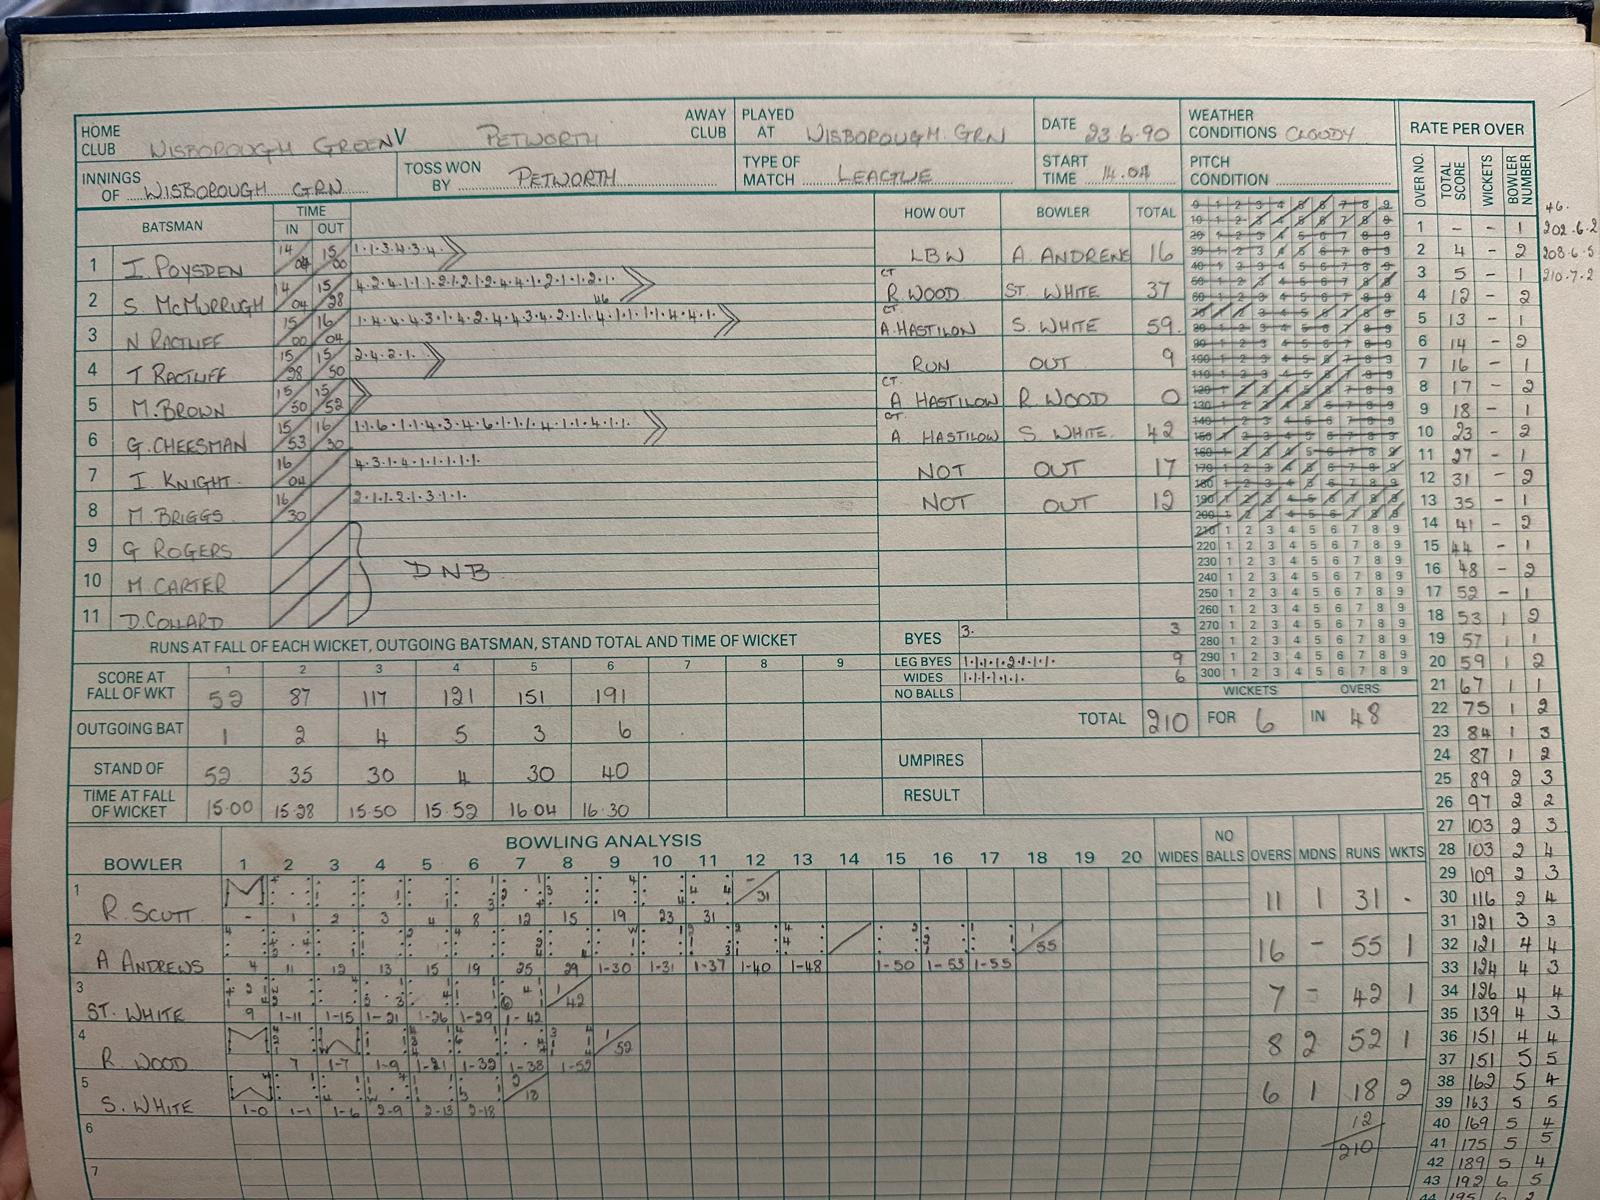 HOME CLUB WISBOROUGH GREEN V PETWORTH AWAY CLUB PLAYED AT WISBOROUGH. GRN DATE 23.6.90 WEATHER CONDITIONS CLOUDY RATE PER OVER
INNINGS OF WISBOROUGH GRN TOSS WON BY PETWORTH TYPE OF MATCH LEAGUE START TIME 14.04 PITCH CONDITION
BATSMAN TIME IN OUT HOW OUT BOWLER TOTAL
1 I. POYSDEN 14 04 15 00 1.1.3.4.3.4. LBW A. ANDRENS 16
2 S. McMURRUGH 14 04 15 28 CT R. WOOD ST. WHITE 37
3 N RACTLIFF 15 00 16 04 CT A. HASTILOW S. WHITE 59.
4 T RACTLIFF 15 28 15 50 2.4.2.1. RUN OUT 9
5 M. BROWN 15 50 15 52 CT. A HASTILOW R. WOOD 0
6 G. CHEESMAN 15 53 16 30 1.1.6.1.1.4.3.4.6.1.1.1.4.1.1.4.1.1. CT. A HASTILOW S. WHITE. 42
7 I. KNIGHT. 16 04 4.3.1.4.1.1.1.1.1. NOT OUT 17
8 M. BRIGGS 16 30 2.1.1.2.1.3.1.1. NOT OUT 12
9 G ROGERS
10 M. CARTER DNB
11 D. COLLARD
RUNS AT FALL OF EACH WICKET, OUTGOING BATSMAN, STAND TOTAL AND TIME OF WICKET
1 2 3 4 5 6 7 8 9
SCORE AT FALL OF WKT 52 87 117 121 151 191
OUTGOING BAT 1 2 4 5 3 6
STAND OF 52 35 30 4 30 40
TIME AT FALL OF WICKET 15.00 15.28 15.50 15.52 16.04 16.30
BYES 3. 3
LEG BYES 1.1.1.1.2.1.1.1. 9
WIDES 1.1.1.1.1.1. 6
NO BALLS
WICKETS OVERS
TOTAL 210 FOR 6 IN 48
UMPIRES
RESULT
BOWLING ANALYSIS
BOWLER 1 2 3 4 5 6 7 8 9 10 11 12 13 14 15 16 17 18 19 20 WIDES NO BALLS OVERS MDNS RUNS WKTS
1 R. SCUTT - 1 2 3 4 8 12 15 19 23 31 31 11 1 31 -
2 A ANDREWS 4 11 12 13 15 19 25 29 1-30 1-31 1-37 1-40 1-48 1-50 1-53 1-55 1/55 16 - 55 1
3 ST. WHITE 9 1-11 1-15 1-21 1-26 1-29 1-42 1/42 7 - 42 1
4 R. WOOD 7 1-7 1-9 1-21 1-32 1-38 1-52 1/52 8 2 52 1
5 S. WHITE 1-0 1-1 1-6 2-9 2-13 2-18 2/18 6 1 18 2
6 12
210
7
OVER NO. TOTAL SCORE WICKETS BOWLER NUMBER
1 - - 1
2 4 - 2
3 5 - 1
4 12 - 2
5 13 - 1
6 14 - 2
7 16 - 1
8 17 - 2
9 18 - 1
10 23 - 2
11 27 - 1
12 31 - 2
13 35 - 1
14 41 - 2
15 44 - 1
16 48 - 2
17 52 - 1
18 53 1 2
19 57 1 1
20 59 1 2
21 67 1 1
22 75 1 2
23 84 1 3
24 87 1 2
25 89 2 3
26 97 2 2
27 103 2 3
28 103 2 4
29 109 2 3
30 116 2 4
31 121 3 3
32 121 4 4
33 124 4 3
34 126 4 4
35 139 4 3
36 151 4 4
37 151 5 5
38 162 5 4
39 163 5 5
40 169 5 4
41 175 5 5
42 189 5 4
43 192 6 5
44 195 6 2
46.
202.6.2
208.6.5
210.7.2